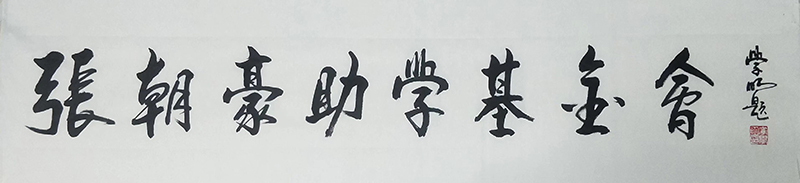 張朝豪助學基金會
學明題